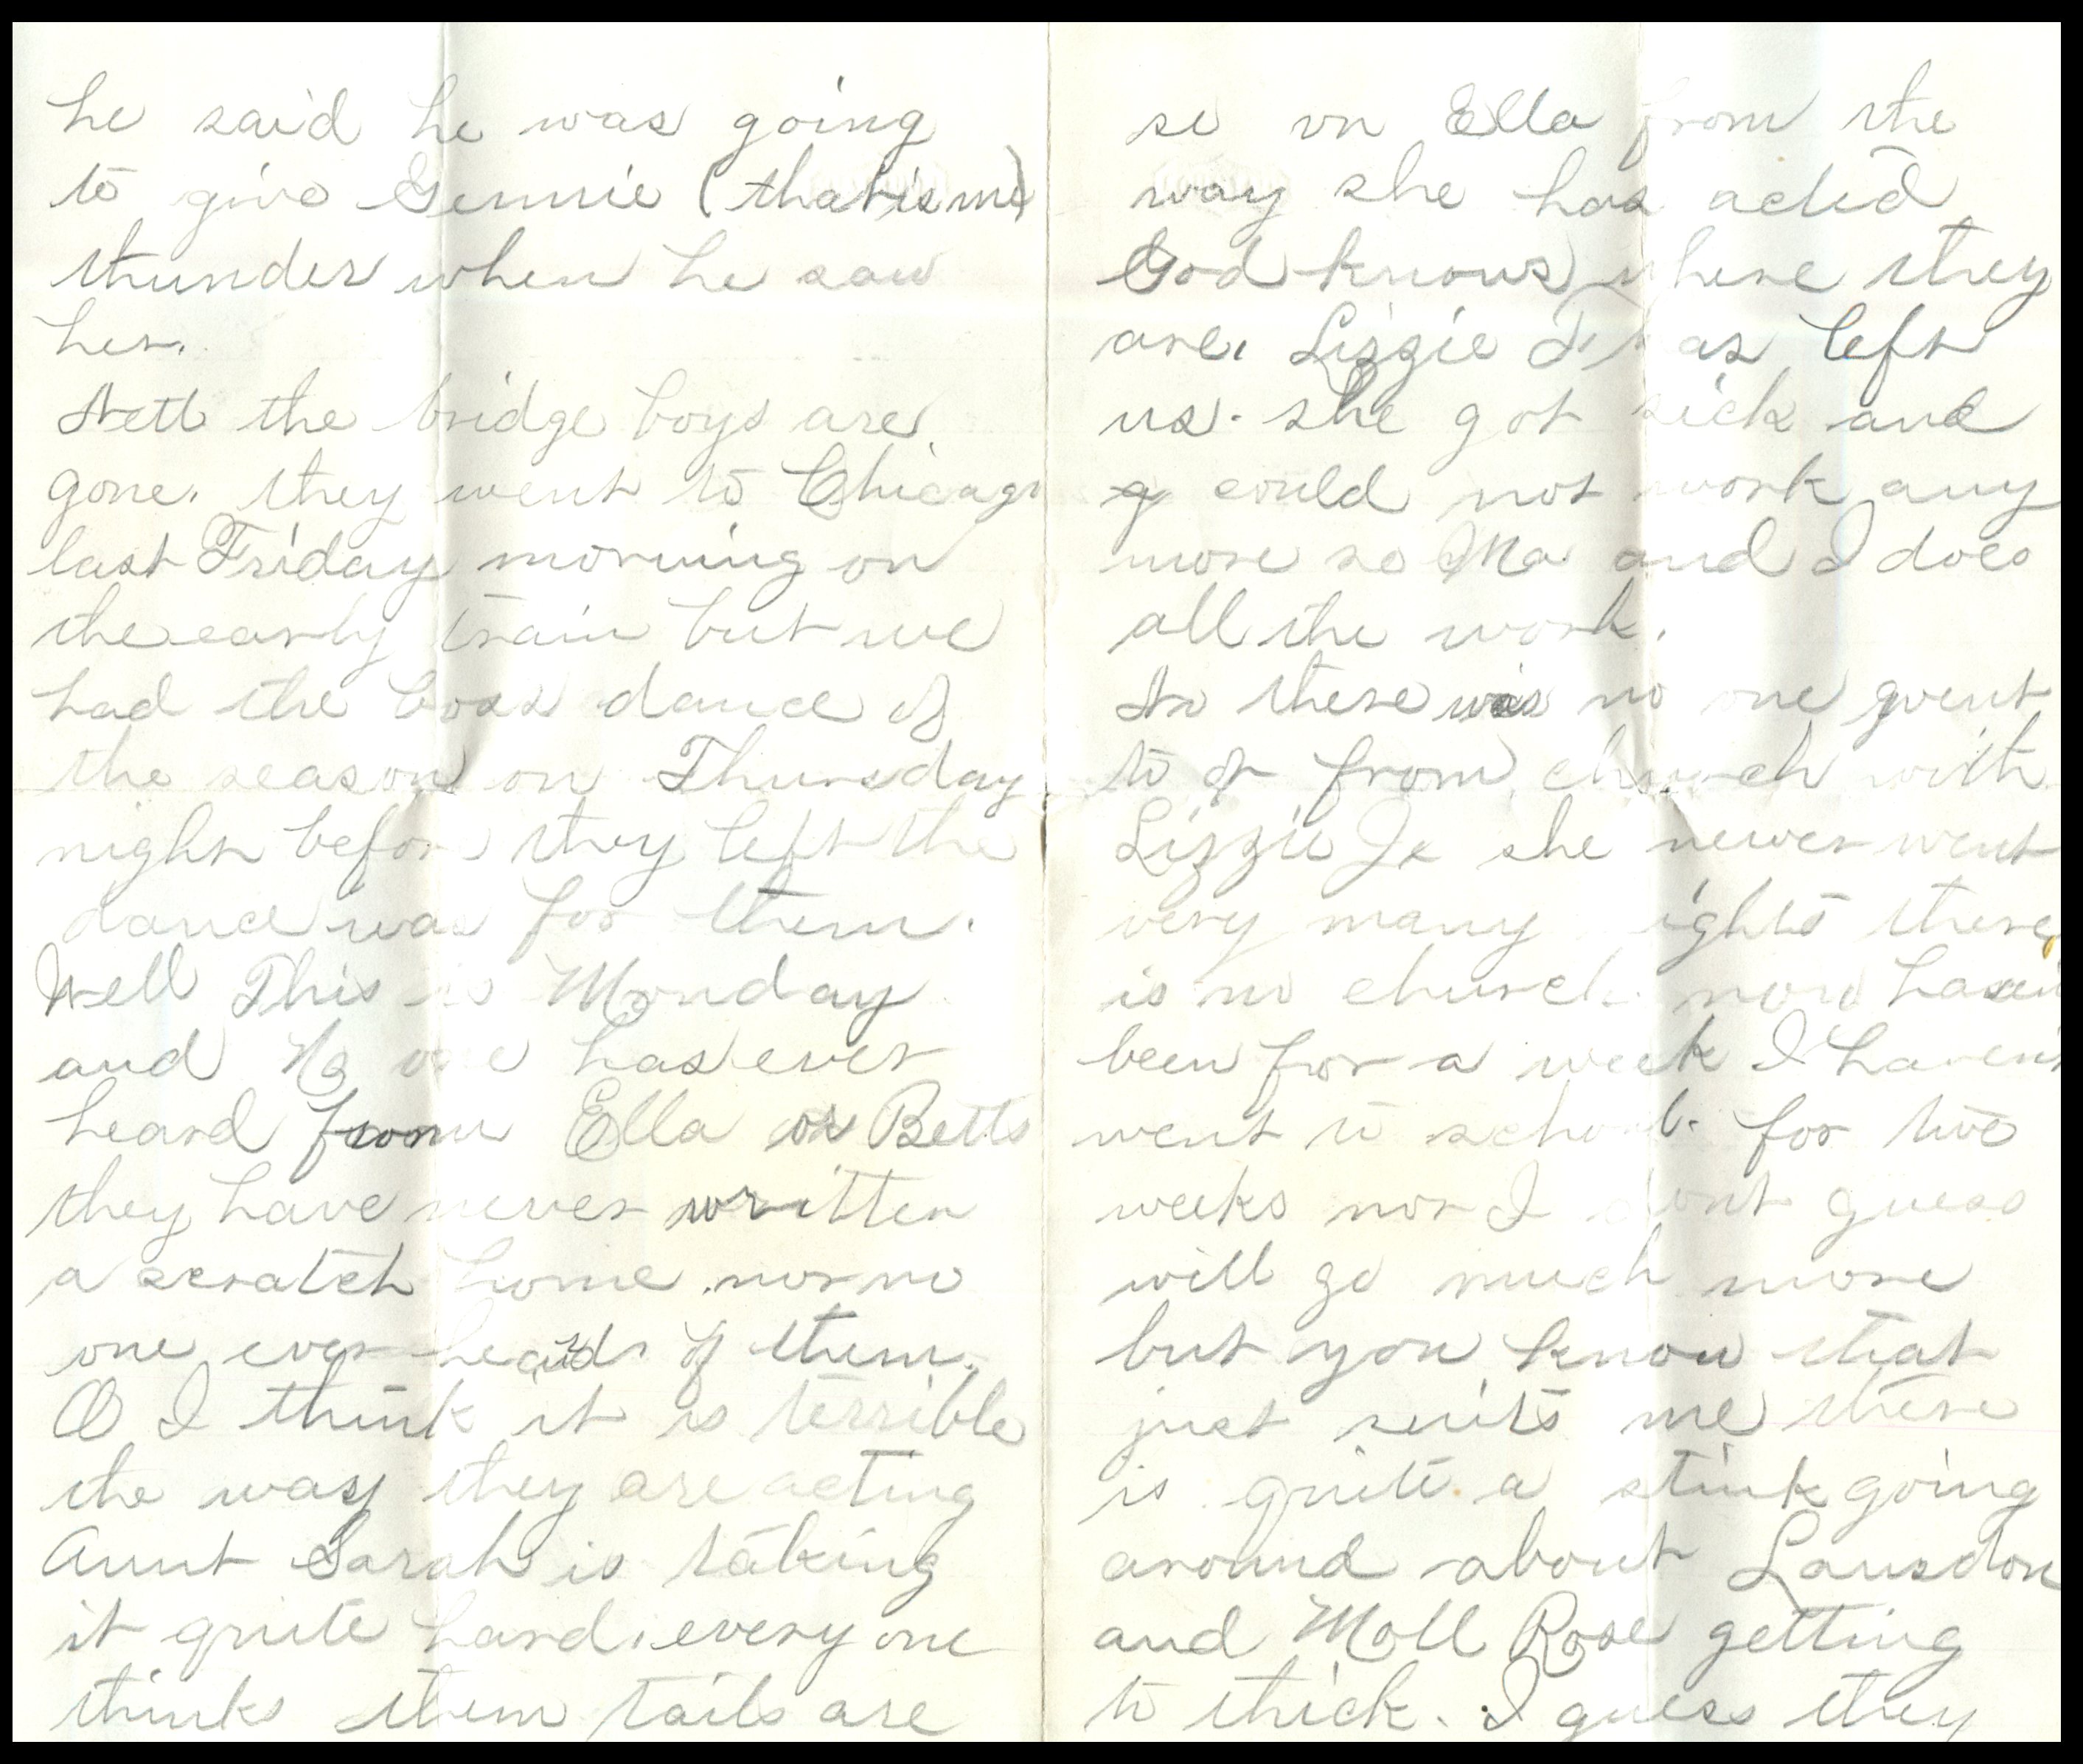 he said he was going
to give Gennie (that is me)
thunder when he saw
her.
Well the bridge boys are
gone. they went to Chicago
last Friday morning on
the early train but we
had the boss dance of
the season on Thursday
night before they left the
dance was for them.
Well This is Monday
and No one has ever
heard from Ella or Betts
they have never written
a scratch home nor no
one ever heards of them.
O I think it is terrible
the way they are acting
Aunt Sarah is taking
it quite hard. every one
thinks them tails are
so on Ella from the
way she has acted
God knows where they
are. Lizzie has left
us. she got sick and
could not work any
more so Ma and I does
all the work.
No there was no one went
to or from church with
Lizzie she never went
very many nights there
is no church now hasen
been for a week I haven't
went to school for two
weeks nor I dont guess
will go much more
but you know that
just suits me there
is quite a stink going
around about Lansdon
and Moll Rose getting
to thick. I guess they